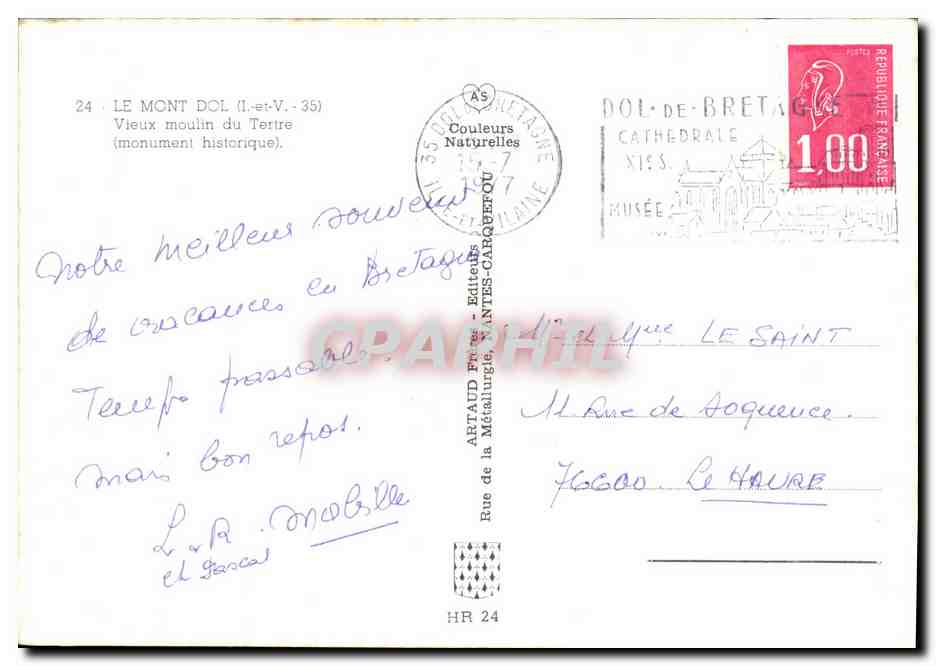 24 - LE MONT DOL (I.-et-V. - 35)
Vieux moulin du Tertre
(monument historique).
AS
Couleurs
Naturelles
35 DOL DE BRETAGNE
15 -7
1977
ILLE-et-VILAINE
DOL-DE-BRETAGNE
CATHEDRALE
XIIIe S.
MUSÉE
POSTES
REPUBLIQUE FRANÇAISE
1,00
Notre meilleur souvenir
de vacances en Bretagne
Temps passable.
mais bon repos.
L. R. Mabille
et Pascal
ARTAUD Frères - Editeurs
Rue de la Métallurgie, NANTES-CARQUEFOU
CPAPHIL
Mr et Mme LE SAINT
11 Rue de Soquence.
76600. Le HAVRE
HR 24